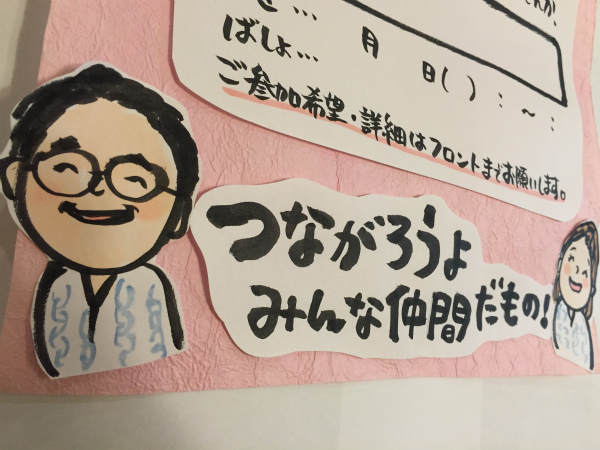 せんか。
ばしょ…
月 日( ) : ~ :
ご参加希望・詳細はフロントまでお願いします。
つながろうよ
みんな仲間だもの!